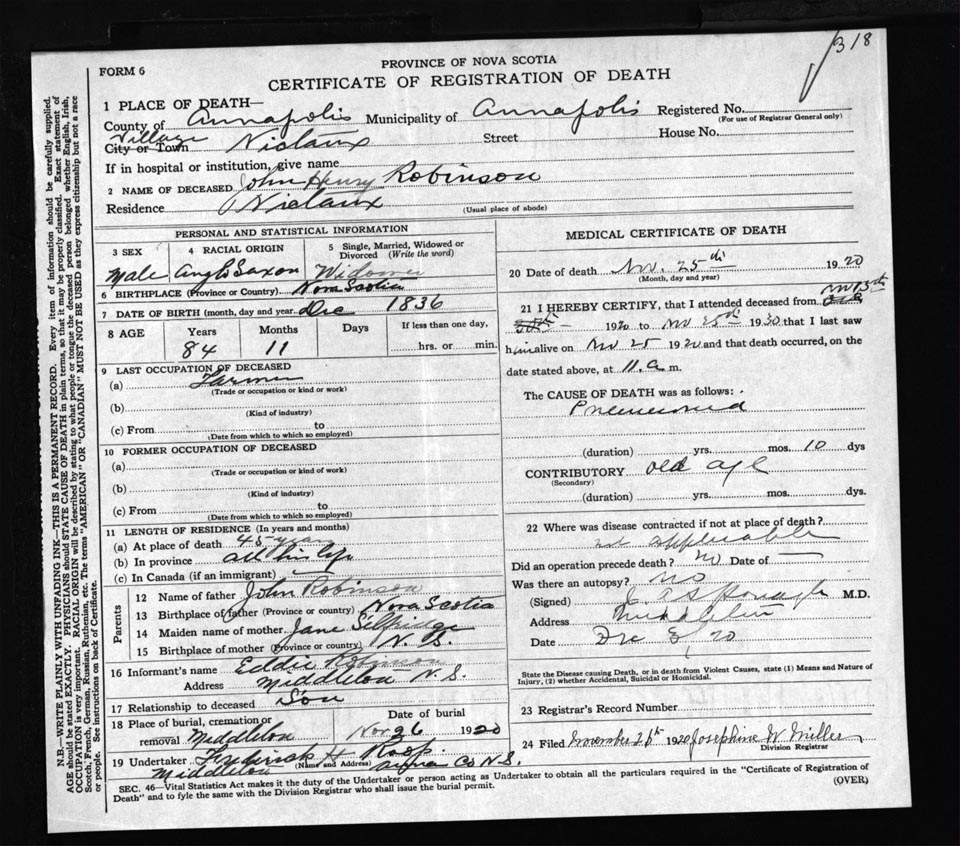 318
PROVINCE OF NOVA SCOTIA
FORM 6
CERTIFICATE OF REGISTRATION OF DEATH
1 PLACE OF DEATH—
County of Annapolis Municipality of Annapolis Registered No.
(For use of Registrar General only)
Village
City or Town Nictaux Street House No.
If in hospital or institution, give name
2 NAME OF DECEASED John Henry Robinson
Residence Nictaux
(Usual place of abode)
PERSONAL AND STATISTICAL INFORMATION
3 SEX 4 RACIAL ORIGIN 5 Single, Married, Widowed or Divorced (Write the word)
Male Anglo Saxon Widower
6 BIRTHPLACE (Province or Country) Nova Scotia
7 DATE OF BIRTH (month, day and year) Dec 1836
8 AGE Years Months Days If less than one day,
84 11 hrs. or min.
9 LAST OCCUPATION OF DECEASED
(a) Farmer
(Trade or occupation or kind or work)
(b)
(Kind of industry)
(c) From to
(Date from which to which so employed)
10 FORMER OCCUPATION OF DECEASED
(a)
(Trade or occupation or kind of work)
(b)
(Kind of industry)
(c) From to
(Date from which to which so employed)
11 LENGTH OF RESIDENCE (In years and months)
(a) At place of death 45 years
(b) In province all his life
(c) In Canada (if an immigrant)
Parents
12 Name of father John Robinson
13 Birthplace of father (Province or country) Nova Scotia
14 Maiden name of mother Jane
15 Birthplace of mother (Province or country) N. S.
16 Informant's name Eddie Robinson
Address Middleton N. S.
17 Relationship to deceased Son
18 Place of burial, cremation or Date of burial
removal Middleton Nov 26 1920
19 Undertaker Frederick H Roop
(Name and Address)
Middleton Co N.S.
MEDICAL CERTIFICATE OF DEATH
20 Date of death Nov. 25th 1920
(Month, day and year)
21 I HEREBY CERTIFY, that I attended deceased from
1920 to Nov 25th 1920 that I last saw
him alive on Nov 25 1920 and that death occurred, on the
date stated above, at 11. a m.
The CAUSE OF DEATH was as follows:
Pneumonia
(duration) yrs. mos. 10 dys
CONTRIBUTORY old age
(Secondary)
(duration) yrs. mos. dys.
22 Where was disease contracted if not at place of death?
not applicable
Did an operation precede death? No Date of —
Was there an autopsy? No
(Signed) M.D.
Address Middleton
Date Dec 20
State the Disease causing Death, or in death from Violent Causes, state (1) Means and Nature of
Injury, (2) whether Accidental, Suicidal or Homicidal.
23 Registrar's Record Number
24 Filed November 1920 Josephine W. Miller
Division Registrar
SEC. 46—Vital Statistics Act makes it the duty of the Undertaker or person acting as Undertaker to obtain all the particulars required in the "Certificate of Registration of
Death" and to fyle the same with the Division Registrar who shall issue the burial permit.
(OVER)
N.B.—WRITE PLAINLY WITH UNFADING INK—THIS IS A PERMANENT RECORD. Every item of information should be carefully supplied.
AGE should be stated EXACTLY. PHYSICIANS should STATE CAUSE OF DEATH in plain terms, so that it may be properly classified. Exact statement of
OCCUPATION is very important. RACIAL ORIGIN will be described by stating to what people or tongue the deceased person belonged whether English, Irish,
Scotch, French, German, Russian, Ruthenian, etc. The terms "AMERICAN" OR "CANADIAN" MUST NOT BE USED as they express citizenship but not a race
or people. See instructions on back of Certificate.